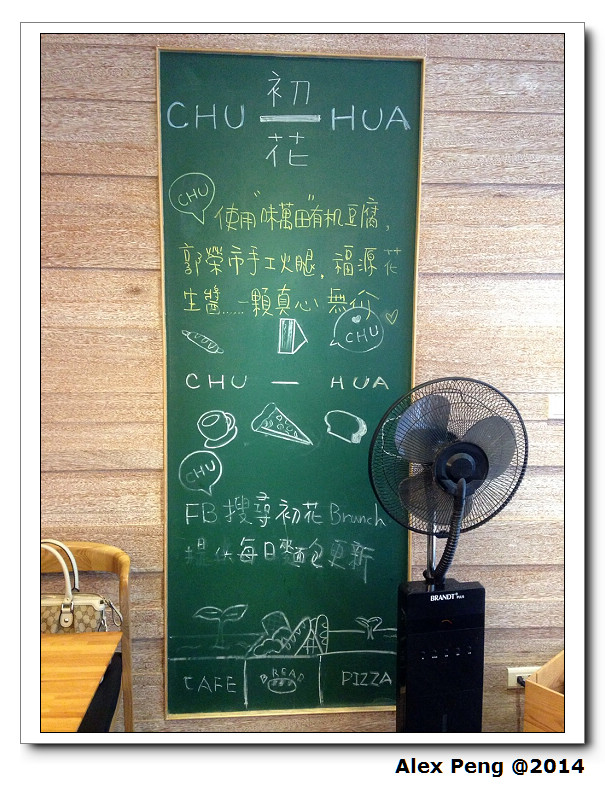 初
CHU — HUA
花
CHU
使用"味萬田"有机豆腐,
郭榮市手工火腿, 福源花
生醬......一顆真心 無价
CHU
CHU — HUA
CHU
FB搜尋初花Brunch
提供每日麵包更新
CAFE
BREAD
PIZZA
BRANDT
Alex Peng @2014